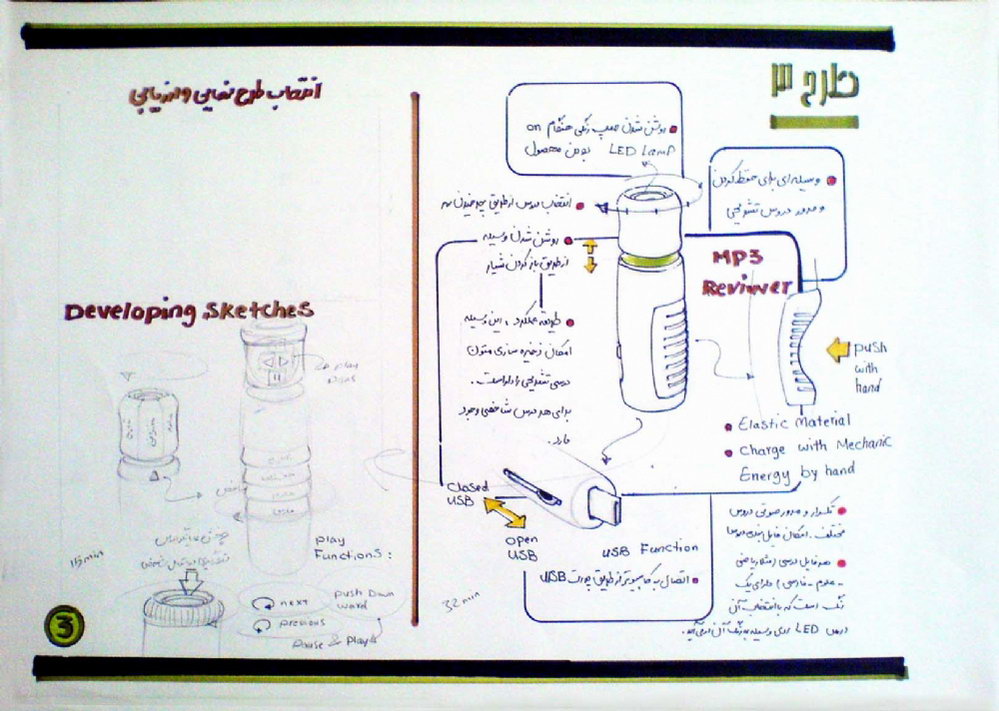 طرح ۳
انتخاب طرح نهایی و ارزیابی
روشن شدن لامپ رنگی هنگام on
بودن محصول LED Lamp
وسیله ای برای حفظ کردن
و مرور دروس تشریحی
انتخاب درس از طریق چرخیدن سر
روشن شدن وسیله
از طریق باز کردن شیار
MP3
Reviwer
طریقه عملکرد : این وسیله
امکان ذخیره سازی متون
درسی تشریحی را داراست.
برای هر درس شاخصی وجود
دارد.
push
with
hand
Elastic Material
Charge with Mechanic
Energy by hand
Closed
USB
open
USB
USB Function
اتصال به کامپیوتر از طریق پورت USB
تکرار و مرور صوتی دروس
مختلف . امکان فایل بندی دروس
هر فایل درسی (مثلا ریاضی
- علوم - فارسی) دارای یک
رنگ است که با انتخاب آن
درس LED روی وسیله به رنگ آن در می آید.
Developing Sketches
play
Functions :
next
previous
push Down
ward
Pause & Play
115 min
32 min
3